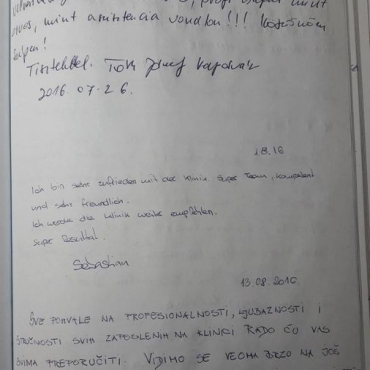 mint asszisztencia vonalon!!! Köszönöm
szépen!
Tisztelettel. Tóth József
2016.07.26.
18.16
Ich bin sehr zufrieden mit der Klinik Super Team, kompetent
und sehr freundlich.
Ich werde die Klinik weiter empfehlen.
Super Resultat.
Sebastian
13.08.2016.
SVE POHVALE NA PROFESIONALNOSTI, LJUBAZNOSTI I
STRUČNOSTI SVIH ZAPOSLENIH NA KLINICI RADO ĆU VAS
SVIMA PREPORUČITI. VIDIMO SE VEOMA BRZO NA JOŠ